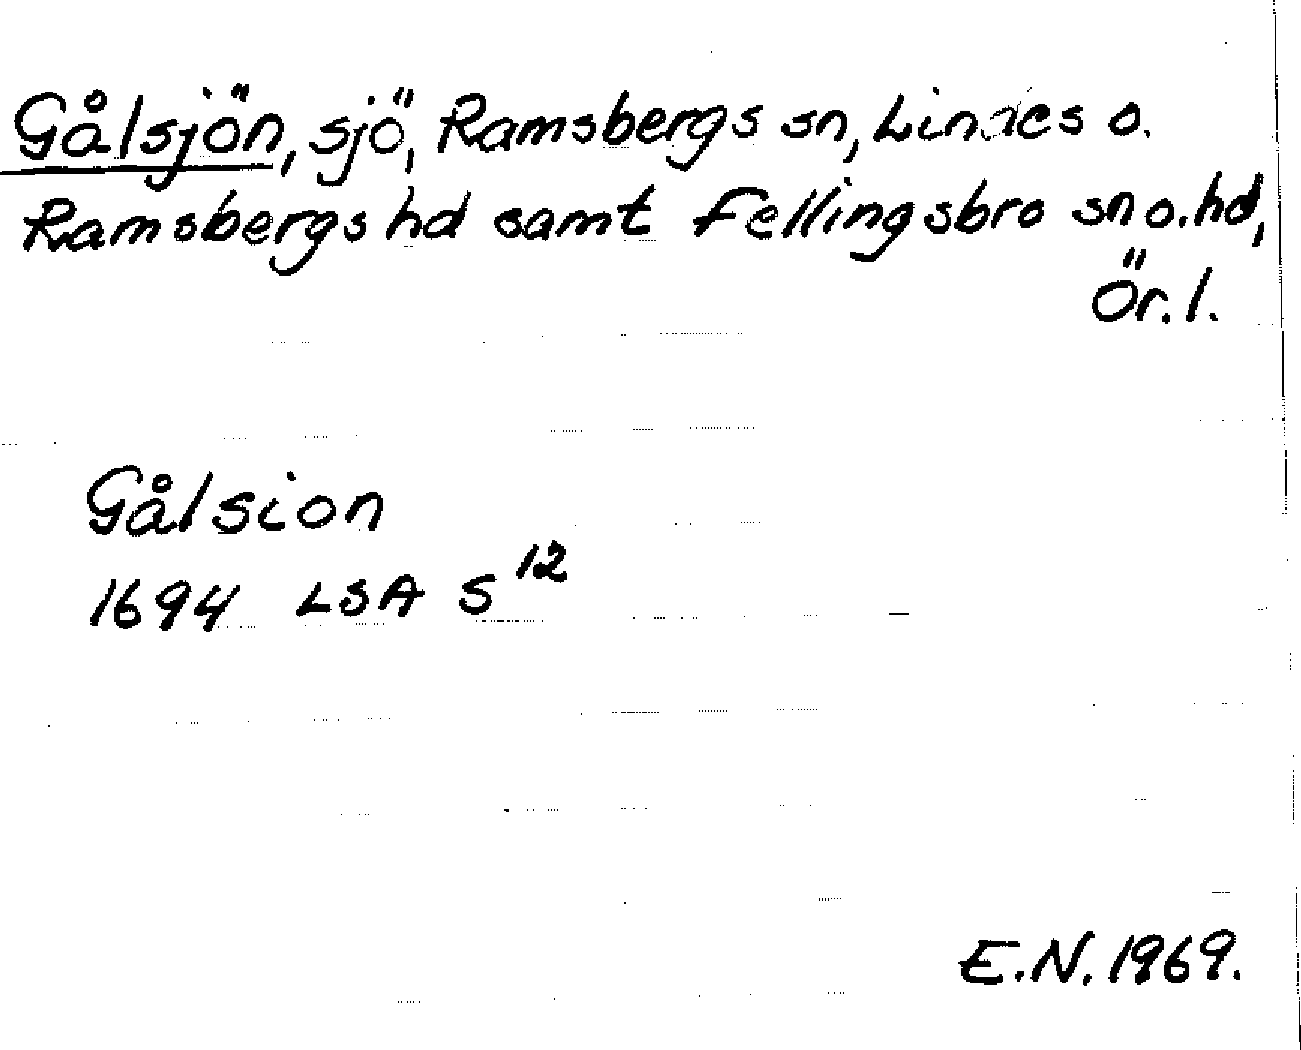 Gålsjön, sjö, Ramsbergs sn, Lindes o.
Ramsbergs hd samt Fellingsbro sn o. hd,
Ör. l.
Gålsion
1694 LSA S 12
E.N. 1969.